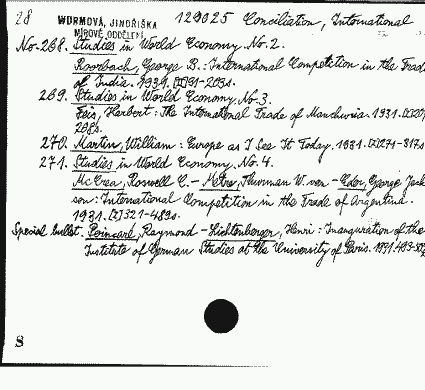 28 WURMOVÁ, JINDŘIŠKA 129025 Conciliation, International
MÍROVÉ ODDĚLENÍ
No. 268. Studies in World Economy. No. 2.
Roorbach, George B.: International Competition in the Trade
of India. 1931. 191-209s.
269. Studies in World Economy. No. 3.
Feis, Herbert: The International Trade of Manchuria. 1931.
268s.
270. Martin, William: Europe as I See It Today. 1931. 271-317s
271. Studies in World Economy. No. 4.
McCrea, Roswell C. - Metre, Thurman W. van - Eder, George Jack
son: International Competition in the Trade of Argentina.
1931. 321-483s.
Special bullet. Poincaré, Raymond - Lichtenberger, Henri: Inauguration of the
Institute of German Studies at the University of Paris. 1931. 493-
S